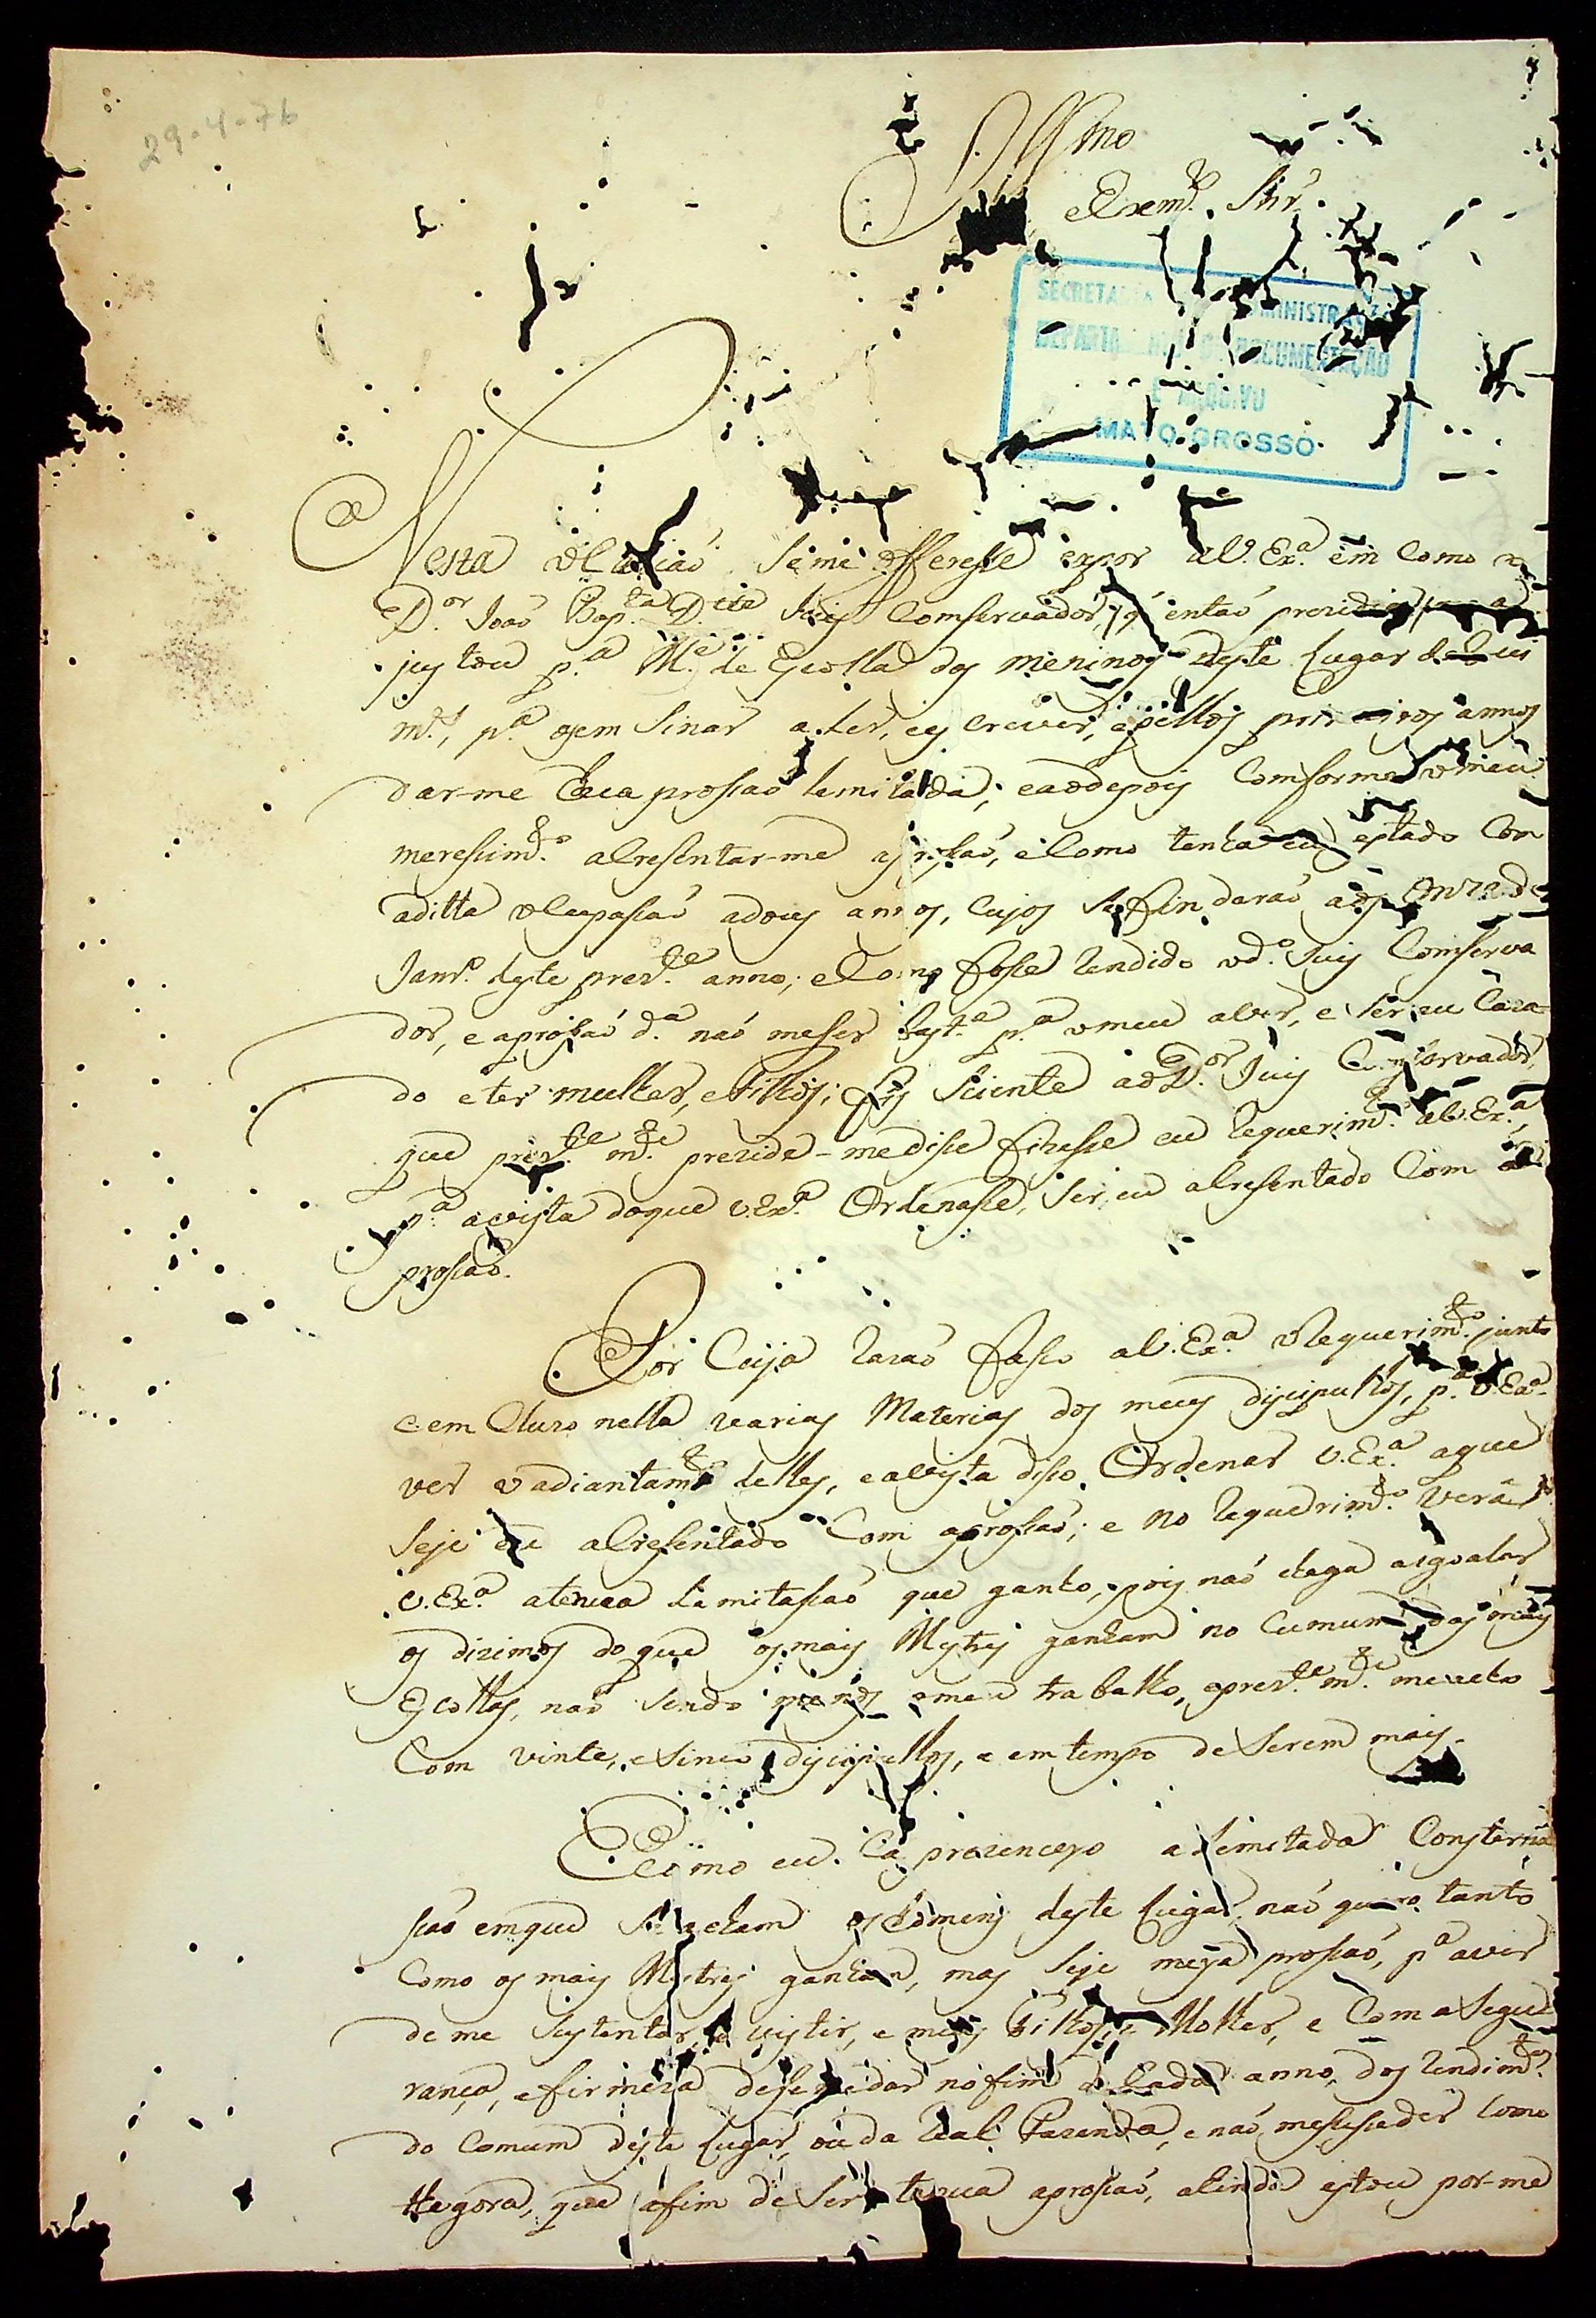 29-4-76
Illmo
e Exmo. Snr.
SECRETA MINISTRAÇÃO
DEPARTAMENTO DOCUMENTAÇÃO
E ARQUIVO
MATO GROSSO
Nesta ocaziaó se me offeresse expor a V. Exª. em como o
Dor. Joaó Bapta. D.te Juis Comservador, q' entaó prezidia
justou pª. Me. de Escolla dos meninos deste Lugar
mo., pª. os em sinar a ler, es crever, e pellos primeiros annos
dar-me huа prossaó lemitada; e ao depois Comforme o meu
meressimto. acressentar-me a prossaó, e Como tenha eu estado Com
a ditta ocupassaó a dous annos, cujos se findaraó aos Onze de
Janro. deste preste. anno; e Como fosse rendido o do. Juis Comserva
dor, e a prossaó dª. naó me ser bastª. pª. o meu aver, e ser eu Caza-
do e ter mulher, e filhos; fis siente ao Dor. Juis Conservador,
que preste. mte. prezide - me disse fizesse eu requerimto. a V. Exª.,
pª. a vista do que V. Exª. Ordenasse, ser eu acressentado Com a
prossaó.
Por Cuja razaó fasso a V. Exª. o Requerimto. junto
e em Cluzo nella varias Materias dos meus discipullos, pª. V. Exª.
ver o adiantamto. delles, e a vista disso Ordenar V. Exª. a que
seje eu acressentado Com a prossaó; e no requerimto. verá
V. Exª. a tenua limitassaó que ganho, pois naó chega a igoalar
os dizimos do que os mais Mestres ganham no Cumum das mais
Escollas, naó sendo menos o meu trabalho, e preste. mte. me acho
Com vinte, e sinco discipullos, e em tempo de serem mais.
E Como eu Ca prezenceyo a limitada Consterna
ssaó em que se acham os homens deste Lugar, naó quero tanto
Como os mais Mestres ganham, mas seje meya prossaó, pª. aver
de me sustentar, e vistir, e meus Filhos, e Molher, e Com a segu
rança, e firmeza desse me dar no fim de Cada anno, dos rendimtos.
do Comum deste Lugar, ou da Real Fazenda, e naó mes susseder Como
the gora, que a fim de ser tenua a prossaó, ahinda estou por-me